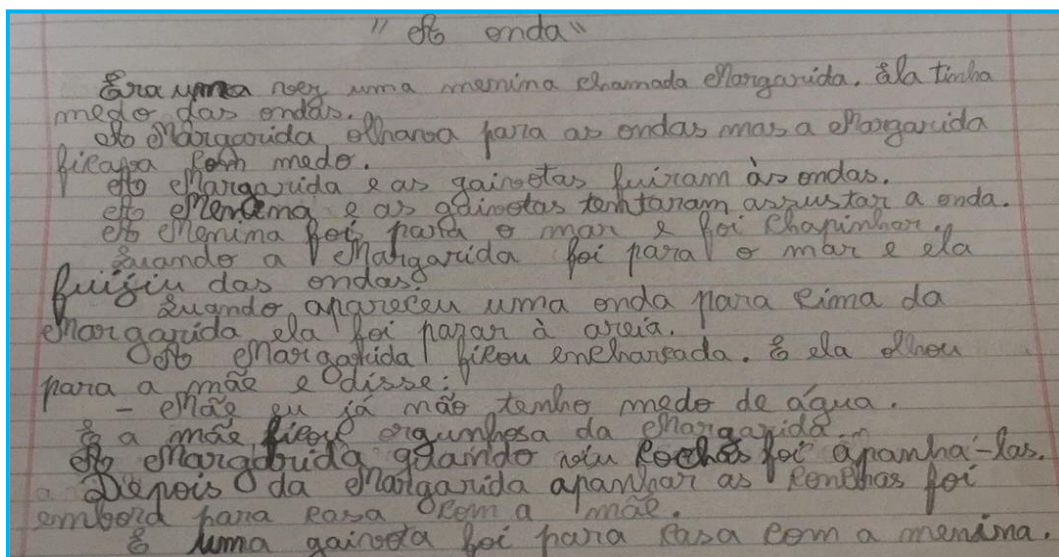 "A onda"
Era uma vez uma menina chamada Margarida. Ela tinha
medo das ondas.
A Margarida olhava para as ondas mas a Margarida
ficava com medo.
A Margarida e as gaivotas fuiram às ondas.
A Menina e as gaivotas temtaram assustar a onda.
A Menima foi para o mar e foi chapinhar.
Quando a Margarida foi para o mar e ela
fuigiu das ondas.
Quando apareceu uma onda para cima da
Margarida ela foi parar à areia.
A Margarida ficou encharcada. E ela olhou
para a mãe e disse:
- Mãe eu já mão tenho medo de água.
E a mãe ficou orgunhosa da Margarida.
A Margarida quando viu cochas foi apanhá-las.
Depois da Margarida apanhar as conchas foi
embora para casa com a mãe.
E uma gaivota foi para casa com a menina.